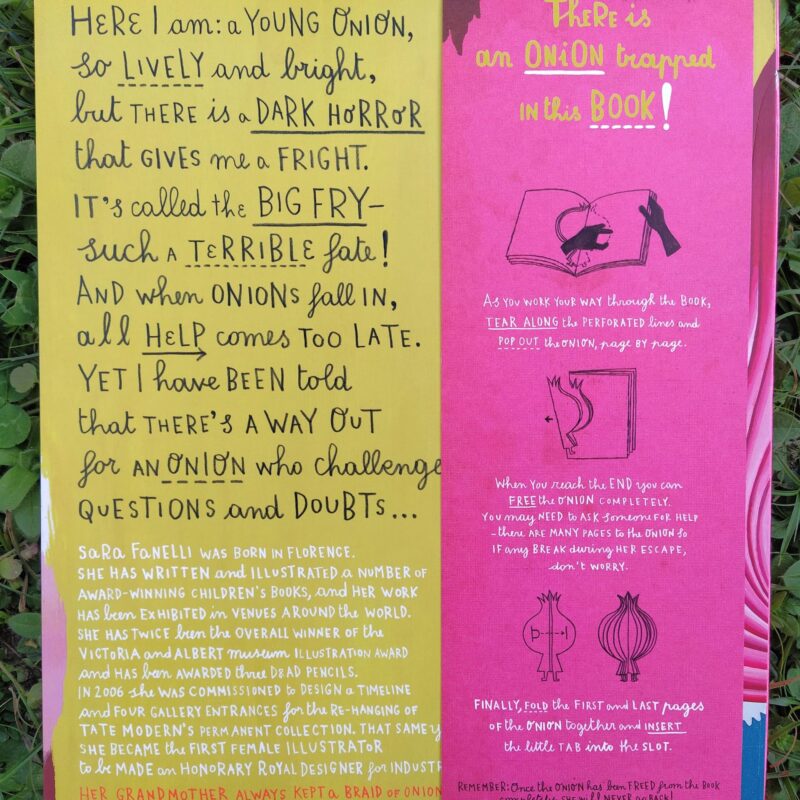 HERE I am: a YOUNG ONION,
so LIVELY and bright,
but THERE is a DARK HORROR
that GIVES me a FRIGHT.
IT's called the BIG FRY–
such A TERRIBLE fate!
AND when ONIONS fall IN,
all HELP comes TOO LATE.
YET I have BEEN told
that THERE'S A WAY OUT
for AN ONION who challenge
QUESTIONS and DOUBTS...
SARA FANELLI WAS BORN IN FLORENCE.
SHE HAS WRITTEN and ILLUSTRATED a NUMBER OF
AWARD-WINNING CHILDREN'S BOOKS, and HER WORK
HAS been EXHIBITED in VENUES AROUND the WORLD.
SHE HAS TWICE been the OVERALL WINNER OF the
VICTORIA and ALBERT museum ILLUSTRATION AWARD
and HAS been AWARDED three D&AD PENCILS.
IN 2006 she WAS COMMISSIONED to DESIGN a TIMELINE
and FOUR GALLERY ENTRANCES for the RE-HANGING OF
TATE MODERN'S PERMANENT COLLECTION. THAT SAME
SHE BECAME the FIRST FEMALE ILLUSTRATOR
to be MADE an HONORARY ROYAL DESIGNER for INDUSTR
HER GRANDMOTHER ALWAYS KEPT a BRAID OF ONION
THERE is
an ONION trapped
IN this BOOK!
AS YOU WORK YOUR WAY through the BOOK,
TEAR ALONG the PERFORATED lines and
POP OUT the ONION, page BY page.
WHEN YOU reach the END you can
FREE the ONION COMPLETELY.
YOU may NEED to ASK someone FOR HELP
–there ARE MANY pages to the ONION so
IF any BREAK during HER ESCAPE,
don't WORRY.
FINALLY, FOLD the FIRST and LAST pages
OF the ONION together and INSERT
the little TAB into the SLOT.
REMEMBER: Once the ONION has been FREED from the BOOK
completely, SHE will NEVER go BACK!